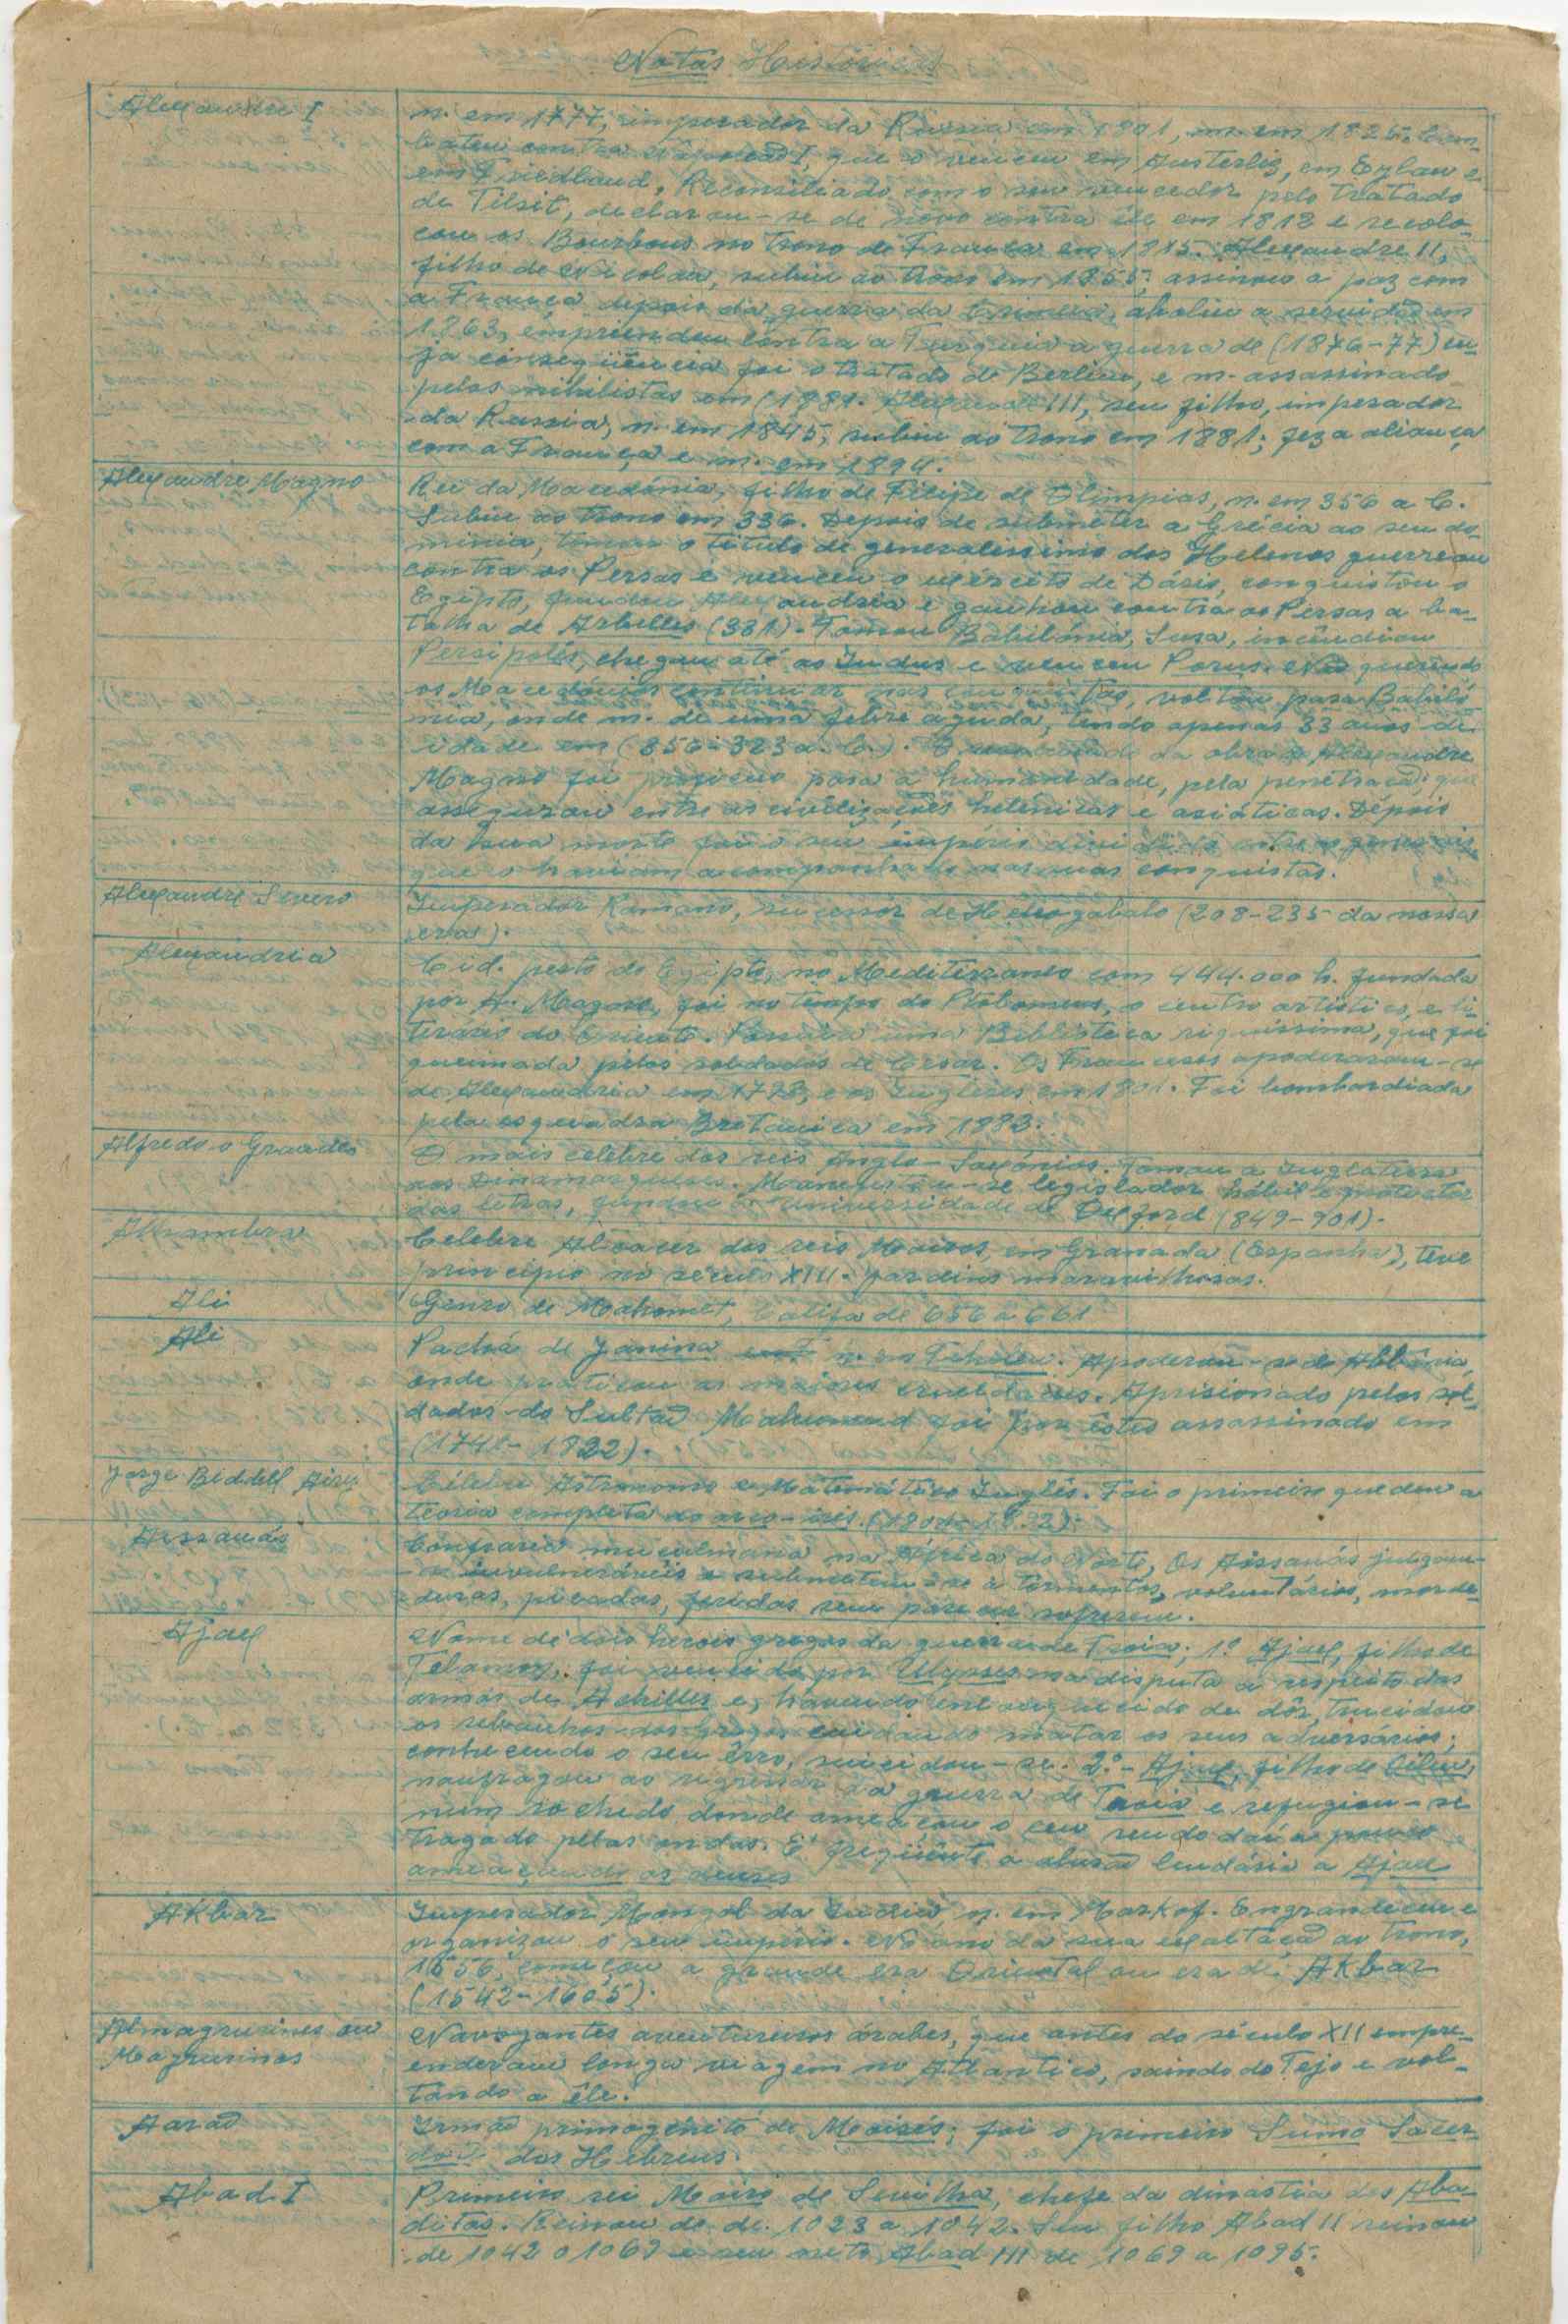 Notas Históricas
Alexandre I
n. em 1777, imperador da Russia em 1801, m. em 1825. Com-
bateu contra Napoleão I, que o venceu em Austerliz, em Eylau e
em Friedland. Reconciliado com o seu vencedor pelo tratado
de Tilsit, declarou-se de novo contra êle em 1812 e recolo-
cou os Bourbons no trono de França em 1815. Alexandre II,
filho de Nicolau, subiu ao trono em 1855; assinou a paz com
a França depois da guerra da Crimeia, aboliu a servidão em
1863, empreendeu contra a Turquia a guerra de (1876-77) cu-
ja conseqüência foi o tratado de Berlim, e m. assassinado
pelos nihilistas em (1881. Alexandre III, seu filho, imperador
da Russia, n. em 1845, subiu ao trono em 1881; fez a aliança
com a França e m. em 1894.
Alexandre Magno
Rei da Macedónia, filho de Filipe de Olimpias, n. em 356 a C.
Subiu ao trono em 336. Depois de submeter a Grécia ao seu do-
minio, tomou o titulo de generalissimo dos Helenos guerreou
contra os Persas e venceu o exército de Dário, conquistou o
Egipto, fundou Alexandria e ganhou contra os Persas a ba-
talha de Arbelles (331). Tomou Babilónia, Susa, incendiou
Persipolis, chegou até ao Indus e venceu Porus. Não querendo
os Macedónios continuar nas conquistas, voltou para Babiló-
nia, onde m. de uma febre aguda, tendo apenas 33 anos de
idade em (356-323 a. C.). da obra de Alexandre
Magno foi proficuo para a humanidade, pela penetração que
assegurou entre as civilizações helénicas e asiáticas. Depois
da sua morte foi o seu império dividido entre os generais
que o haviam acompanhado nas suas conquistas.
Alexandre Severo
Imperador Romano, sucessor de Heliogabalo (208-235 da nossa
era).
Alexandria
Cid. porto do Egipto, no Mediterraneo com 444.000 h. fundada
por A. Magno, foi no tempo do Ptolomeus, o centro artistico, e li-
terario do Oriente. Possuia uma Biblioteca riquissima, que foi
queimada pelos soldados de Cesar. Os Franceses apoderaram-se
de Alexandria em 1798, e os Ingleses em 1801. Foi bombardiada
pela esquadra Bretanica em 1882.
Alfredo o Grande
O mais celebre dos reis Anglo-Saxónios. Tomou a Inglaterra
aos Dinamarqueses. Manifestou-se legislador hábil e protector
das letras, fundou a universidade de Oxford (849-901).
Alhambra
Celebre Alcacer dos reis Moiros, em Granada (Espanha), teve
principio no século XIII. Jardins maravilhosos.
Ali
Genro de Mahomet, Califa de 656 a 661
Ali
Pachá de Janina n. em . Apoderou-se da Albânia,
onde praticou as maiores crueldades. Aprisionado pelos sol-
dados do Sultão Mahomoud foi por êstes assassinado em
(1741-1822).
Jorge Biddell Airy
Célebre Astronomo e Matemático Inglês. Foi o primeiro que deu a
teoria completa do arco-iris. (1801-1892).
Aissauás
Confraria muculmana na África do Norte, Os Aissauás julgam-
se invulneráveis e submetem-se a tormentos, voluntários, morde-
duras, picadas, feridas sem parecer sofrerem.
Ajax
Nome de dois herois gregos da guerra de Troia; 1º Ajax, filho de
Telamon, foi vencido por Ulysses na disputa a respeito das
armas de Achilles e, havendo enlouquecido de dôr, trucidou
os rebanhos dos gregos cuidando matar os seus adversários;
conhecendo o seu êrro, suicidou-se. 2º-Ajax, filho de Oileu,
naufragou ao regressar da guerra de Troia e refugiou-se
num rochedo donde ameaçou o ceu sendo daí a pouco
tragado pelas ondas. É freqüente a alusão lendária a Ajax
ameaçando os deuses
Akbar
Imperador Mongol da India, n. em Markof. Engrandeceu e
organizou o seu império. No ano da sua exaltação ao trono,
1556, começou a grande era Oriental ou era de Akbar
(1542-1605).
Almagrurinos ou
Magrurinos
Navegantes aventureiros árabes, que antes do século XII empre-
enderam longa viagem no Atlantico, saindo do Tejo e vol-
tando a êle.
Aarão
Irmão primogénito de Moisés; foi o primeiro Sumo Sacer-
dote dos Hebreus.
Abad I
Primeiro rei Moiro de Sevilha, chefe da dinastia dos Aba-
ditas. Reinou de de. 1023 a 1042. Seu filho Abad II reinou
de 1042 a 1069 e seu neto Abad III de 1069 a 1095.